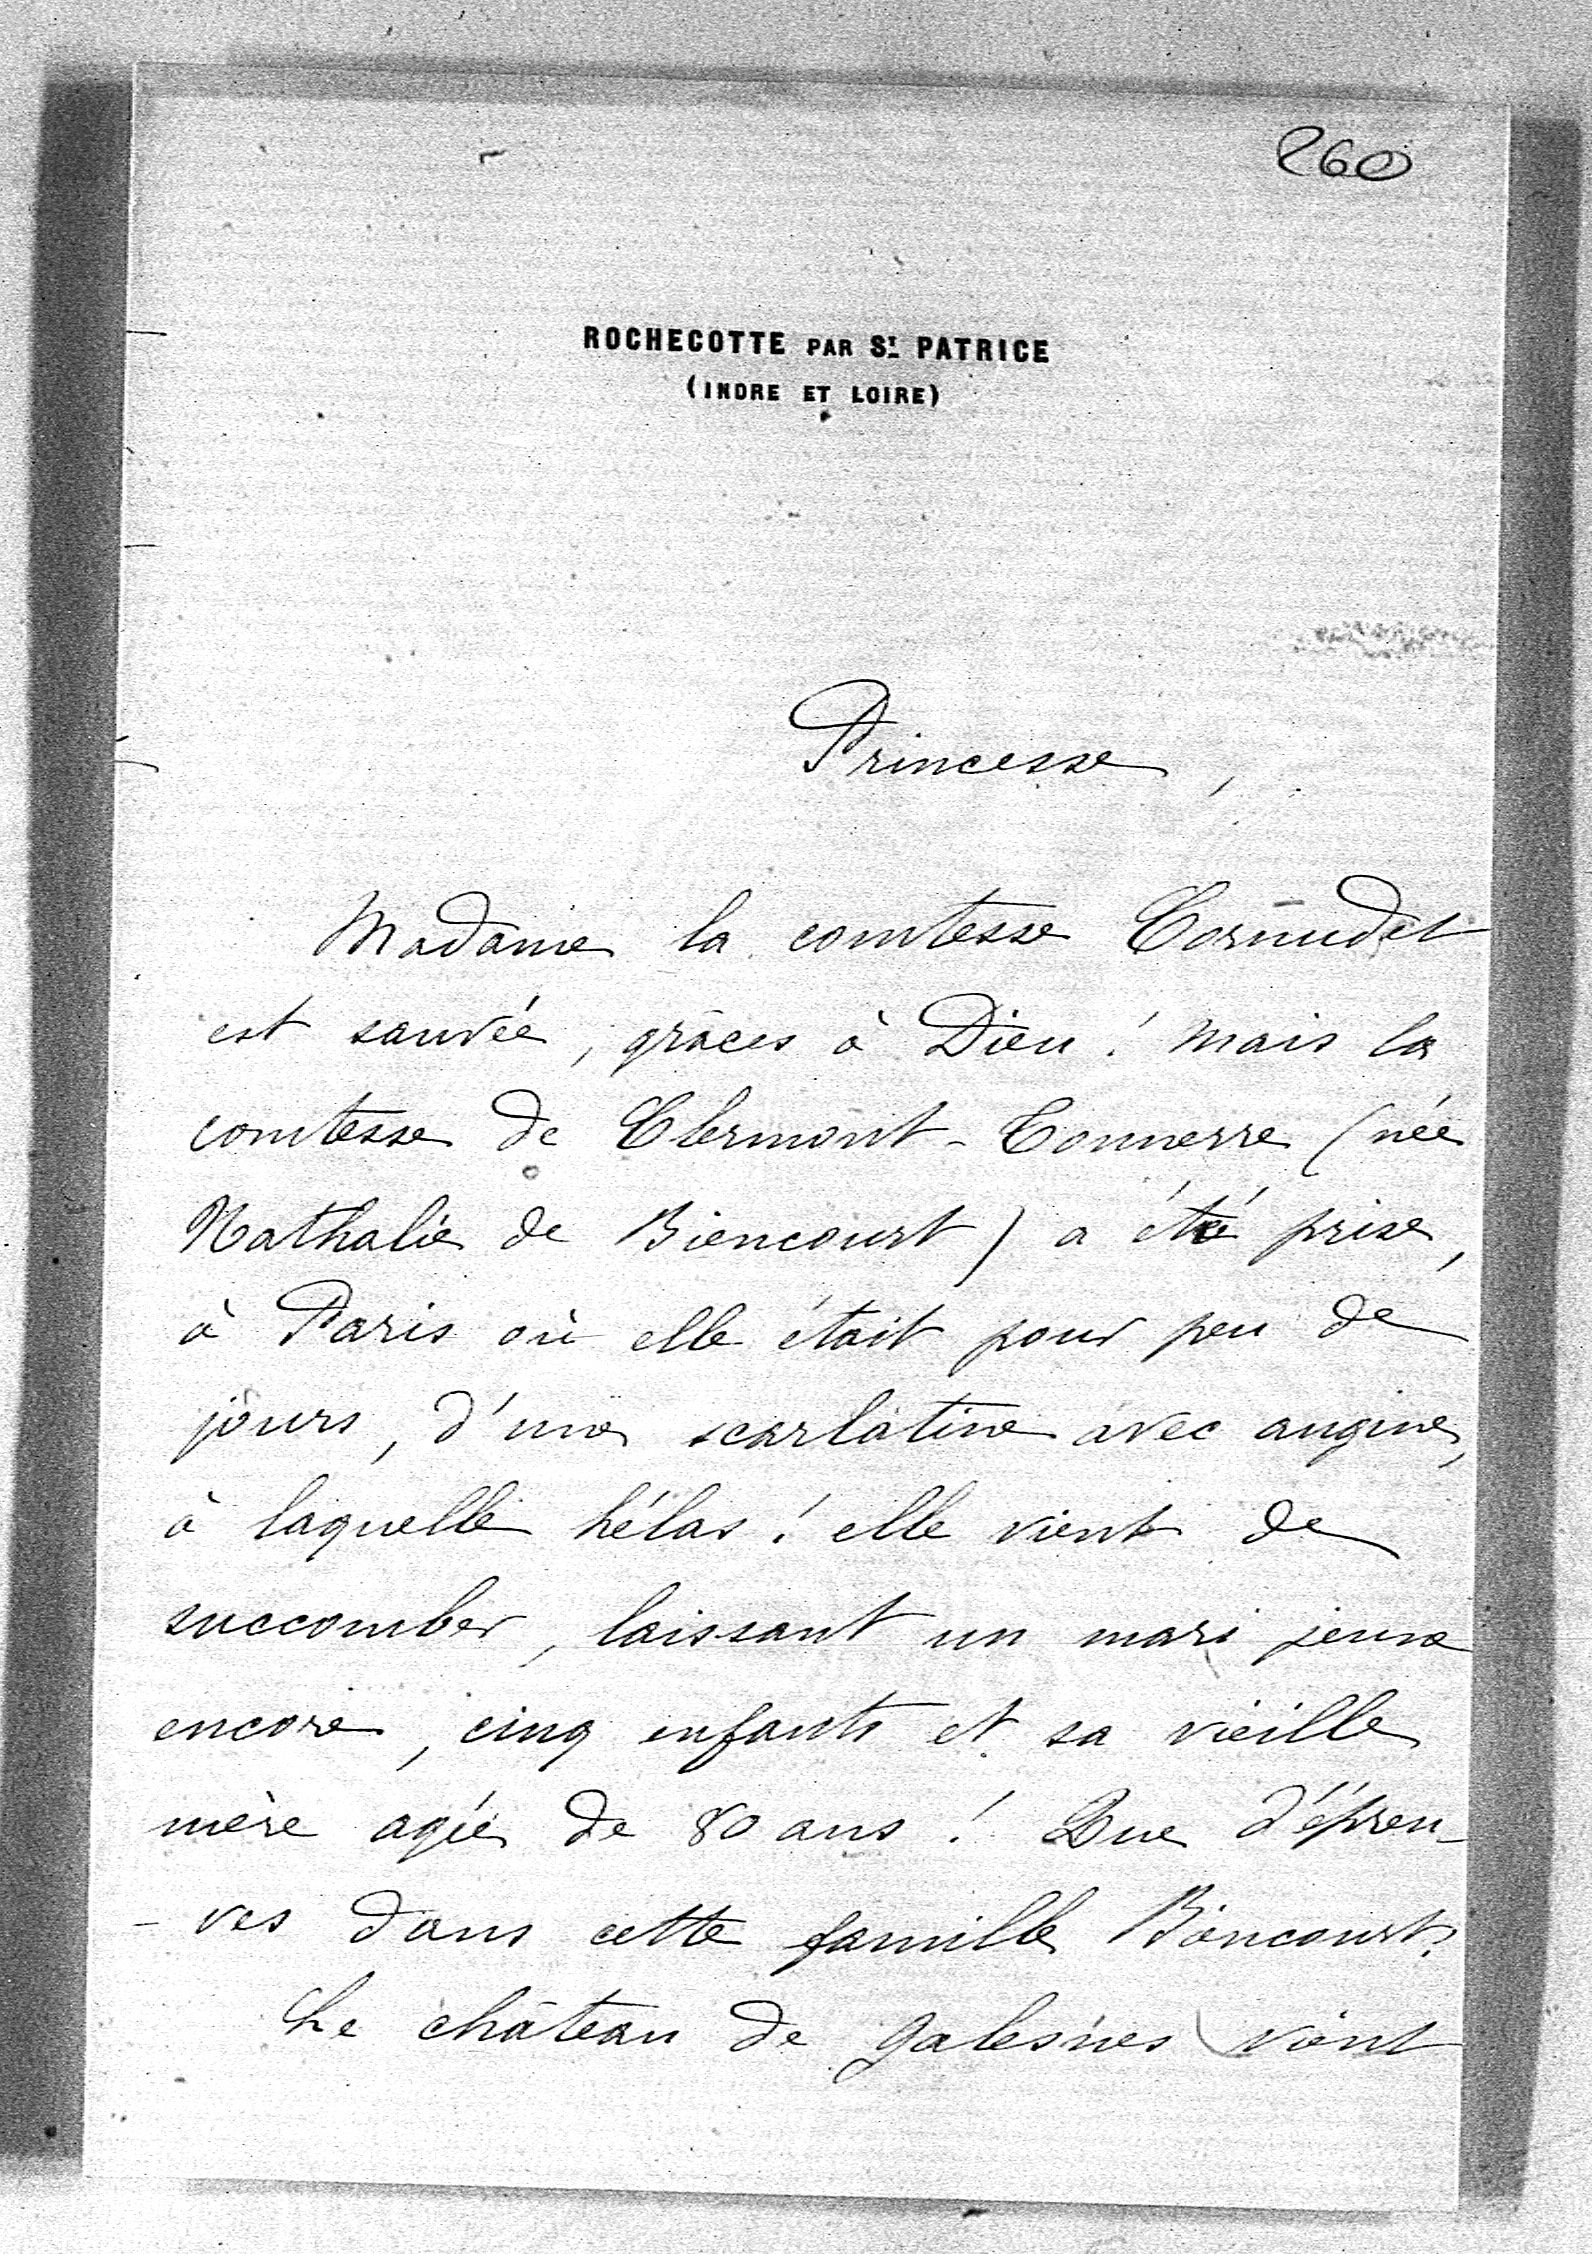 260
ROCHECOTTE PAR ST PATRICE
(INDRE ET LOIRE)
Princesse,
Madame la comtesse Cornudet
est sauvée, grâces à Dieu ! Mais la
comtesse de Clermont-Tonnerre (née
Nathalie de Biencourt) a été prise,
à Paris où elle était pour peu de
jours, d'une scarlatine avec angine,
à laquelle hélas ! elle vient de
succomber, laissant un mari jeune
encore, cinq enfants et sa vieille
mère agée de 80 ans ! Que d'épreu-
-ves dans cette famille Biencourt !
Le château de Galesnes vient